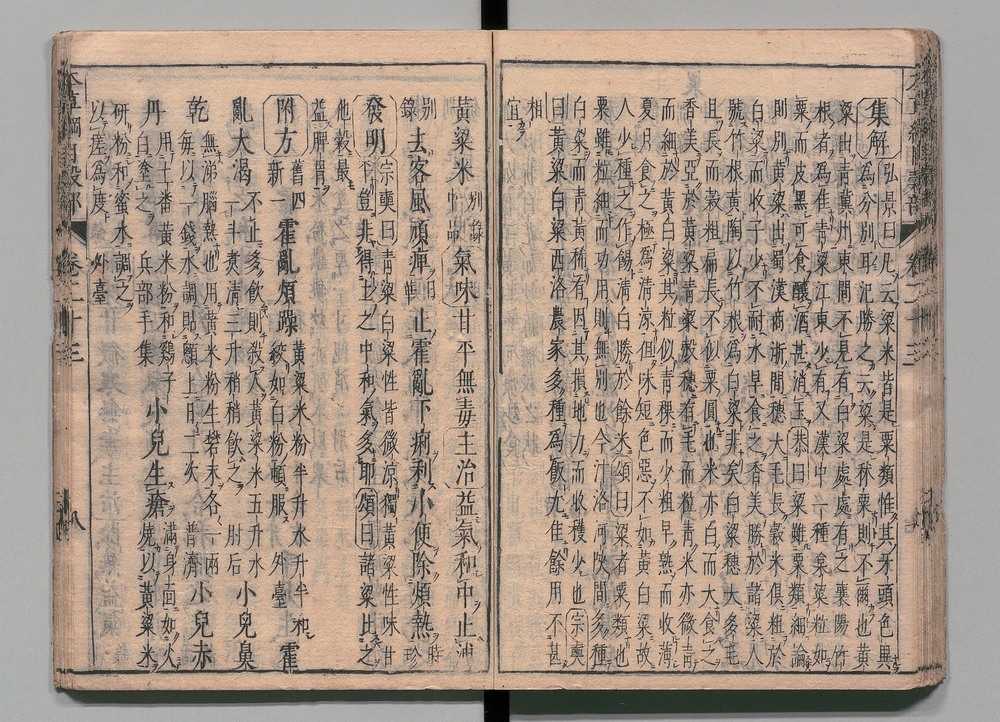 集解弘景曰凡云粱米皆是粟類惟其牙頭色異
為分別耳氾勝之云粱是秫粟則不爾也黃
粱出青冀州東間不見有白粱處處有之襄陽竹
根者為佳青粱江東少有又漢中一種枲粱粒如
粟而皮黑可食釀酒甚消玉恭曰粱雖粟類細論
則別黃粱出蜀漢商浙間穗大毛長穀米俱粗於
白粱而收子少不耐水旱食之香美勝於諸粱人
號竹根黃陶以竹根為白粱非矣白粱穗大多毛
且長而穀粗扁長不似粟圓也米亦白而大食之
香美亞於黃粱青粱穀穗有毛而粒青米亦微青
而細於黃白粱其粒似青稞而少粗早熟而收薄
夏月食之極為清涼但味短色惡不如黃白粱故
人少種之作餳清白勝於餘米頌曰粱者粟類也
粟雖粒細而功用則無別也今汴洛河陝間多種
白粱而青黃稀有因其損地力而收穫少也宗奭
曰黃粱白粱西洛農家多種為飯尤佳餘用不甚
相
宜
黃粱米別錄中品氣味甘平無毒主治益氣和中止洩
別錄去客風頑痺日華止霍亂下痢利小便除煩熱時珍
發明宗奭曰青粱白粱性皆微涼獨黃粱性味甘
平豈非得土之中和氣多耶頌曰諸粱比之
他穀最
益脾胃
附方舊四新一霍亂煩躁黃粱米粉半升水升半和
絞如白粉頓服外臺霍
亂大渴不止多飲則殺人黃粱米五升水
一斗煮清三升稍稍飲之肘后小兒鼻
乾無涕腦熱也用黃米粉生礬末各一兩
每以一錢水調貼顖上日二次普濟小兒赤
丹用土番黃米粉和鷄子
白塗之兵部手集小兒生瘡滿身面如火
燒以黃粱米
研粉和蜜水調之
以瘥為度外臺
卷二十三
八
本草綱目穀部
卷二十三